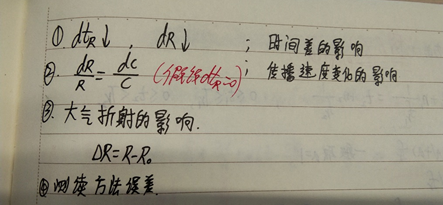 ① dt_R↓, dR↓ ; 时间差的影响
②. dR/R = dC/C (分段线dt_R=0) ; 传播速度变化的影响
③. 大气折射的影响.
ΔR=R-R₀
④ 测读方法误差.